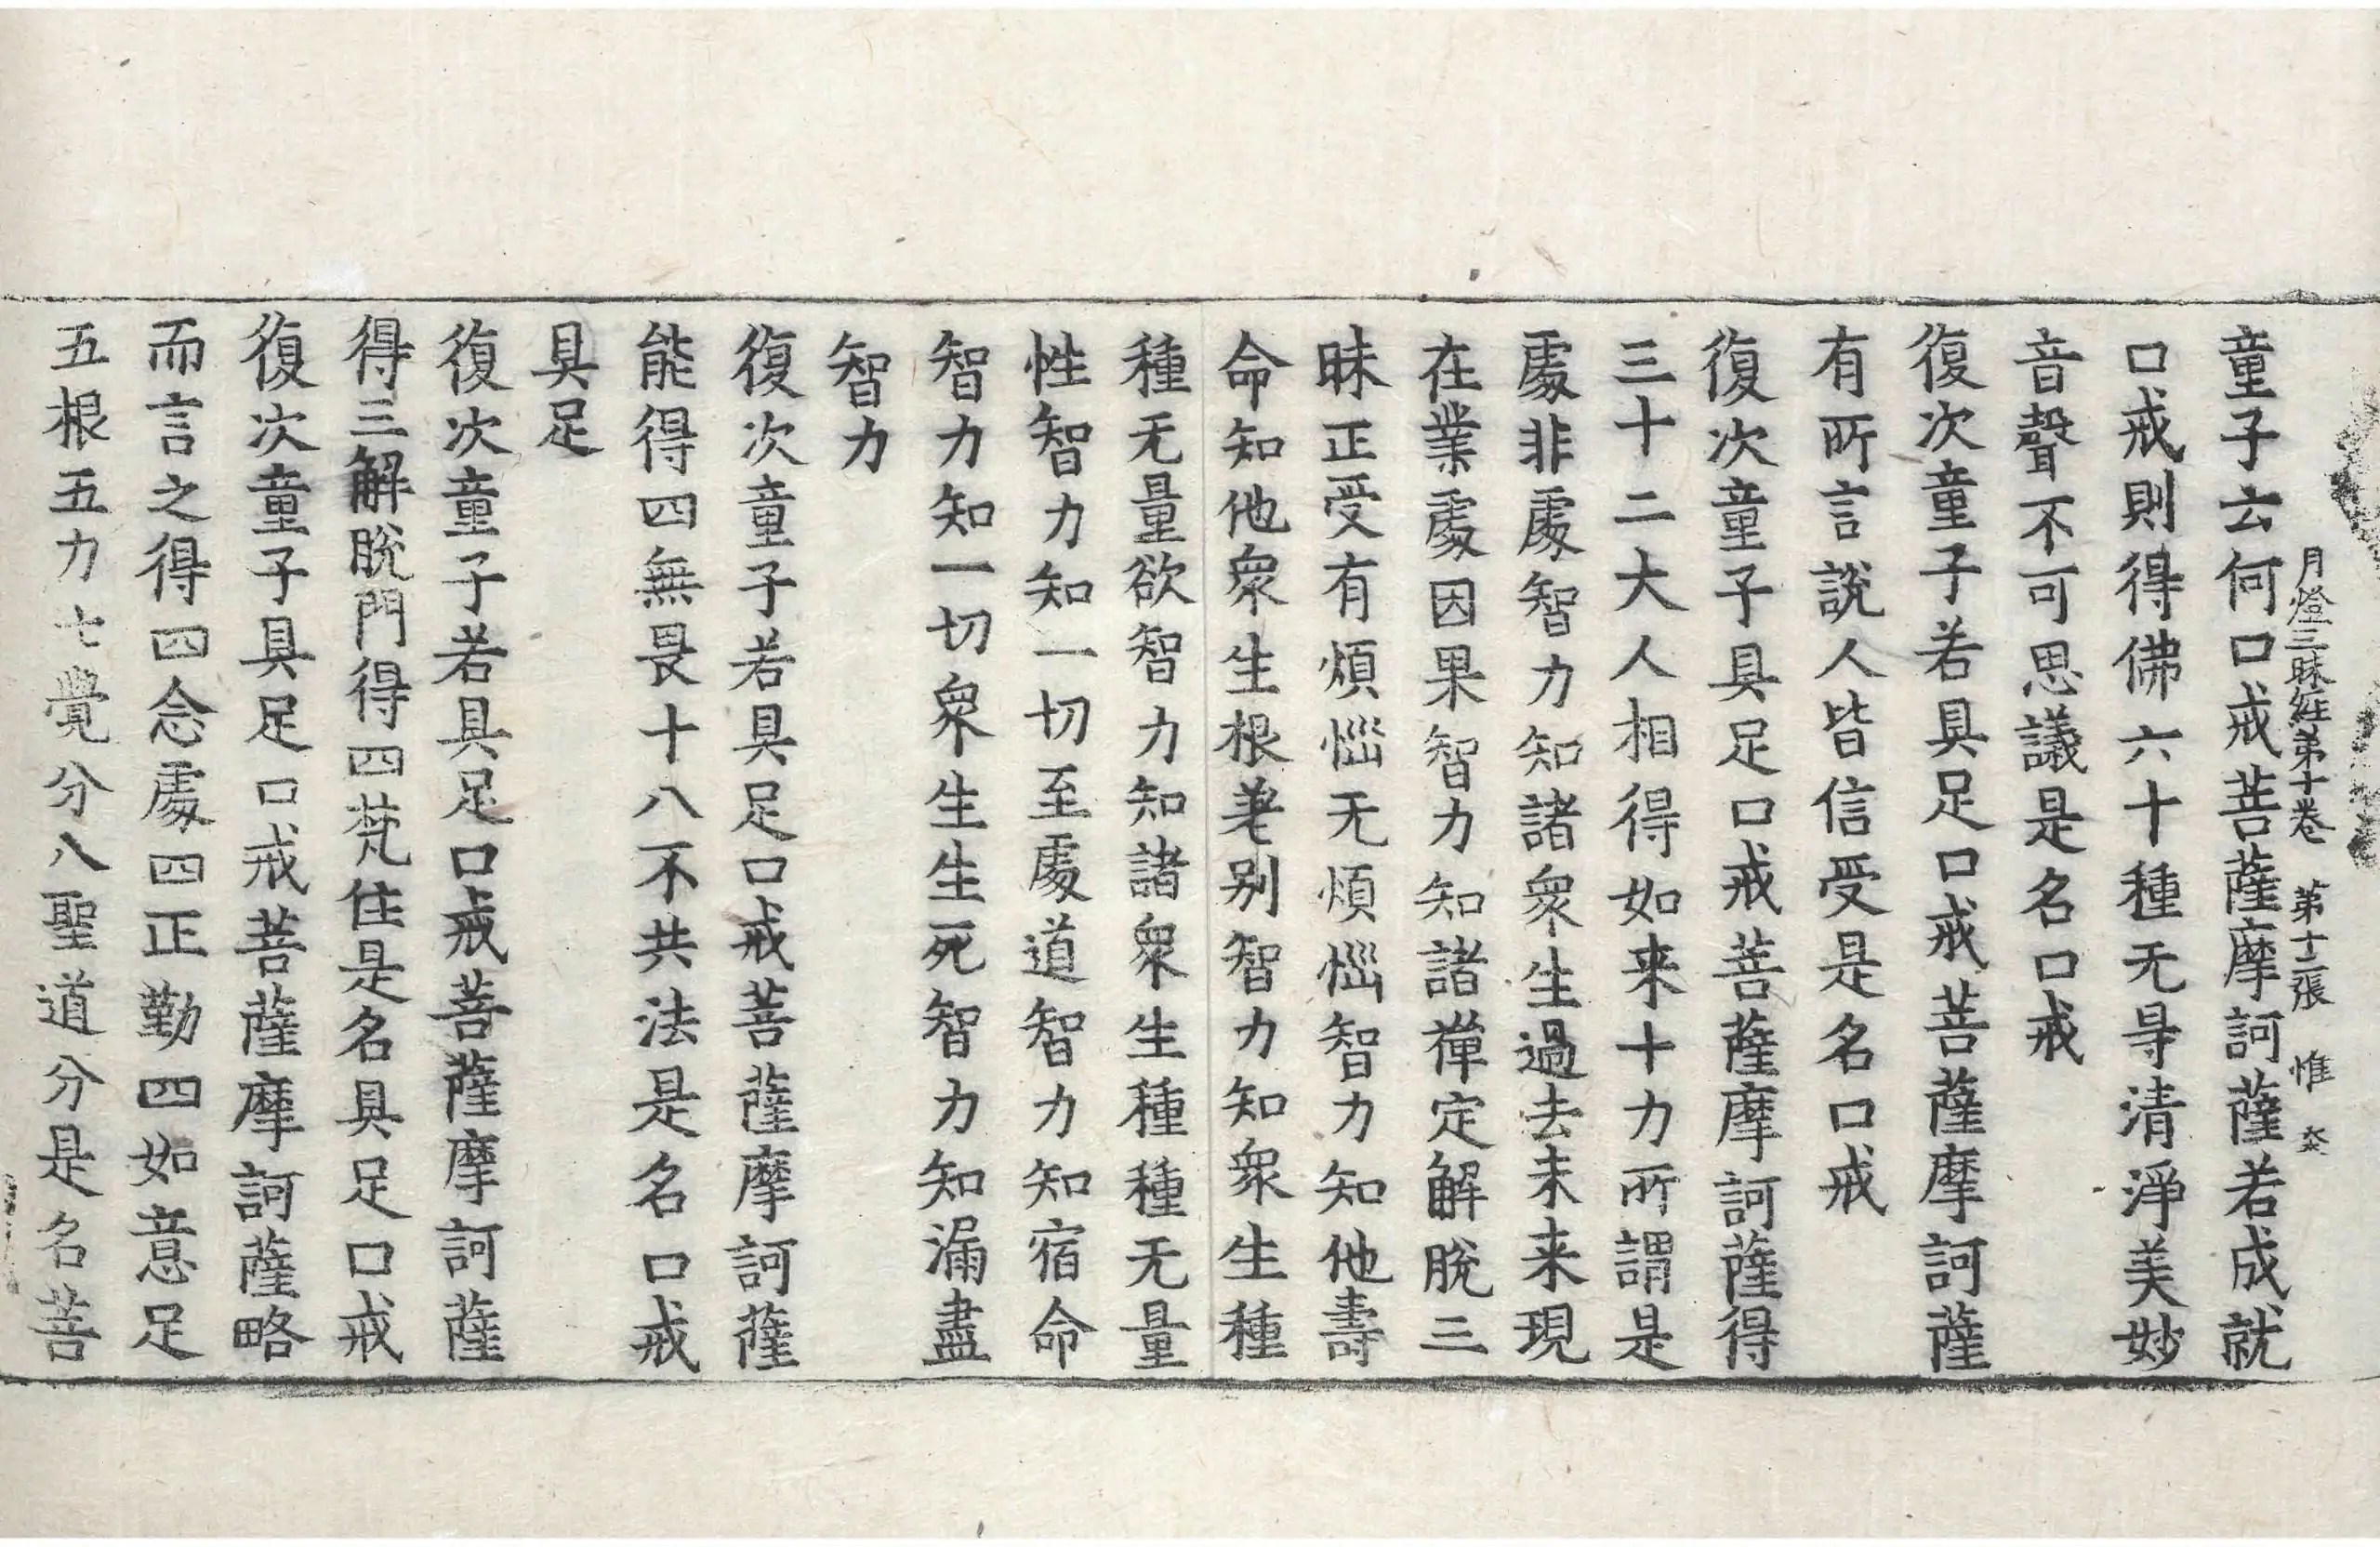 月燈三昧経第十卷 第十二張 惟 叅
童子云何口戒菩薩摩訶薩若成就
口戒則得佛六十種无㝵清淨美妙
音聲不可思議是名口戒
復次童子若具足口戒菩薩摩訶薩
有所言說人皆信受是名口戒
復次童子具足口戒菩薩摩訶薩得
三十二大人相得如来十力所謂是
處非處智力知諸衆生過去未来現
在業處因果智力知諸禪定解脫三
昧正受有煩惱无煩惱智力知他壽
命知他衆生根差别智力知衆生種
種无量欲智力知諸衆生種種无量
性智力知一切至處道智力知宿命
智力知一切衆生生死智力知漏盡
智力
復次童子若具足口戒菩薩摩訶薩
能得四無畏十八不共法是名口戒
具足
復次童子若具足口戒菩薩摩訶薩
得三解脫門得四梵住是名具足口戒
復次童子具足口戒菩薩摩訶薩略
而言之得四念處四正勤四如意足
五根五力七覺分八聖道分是名菩